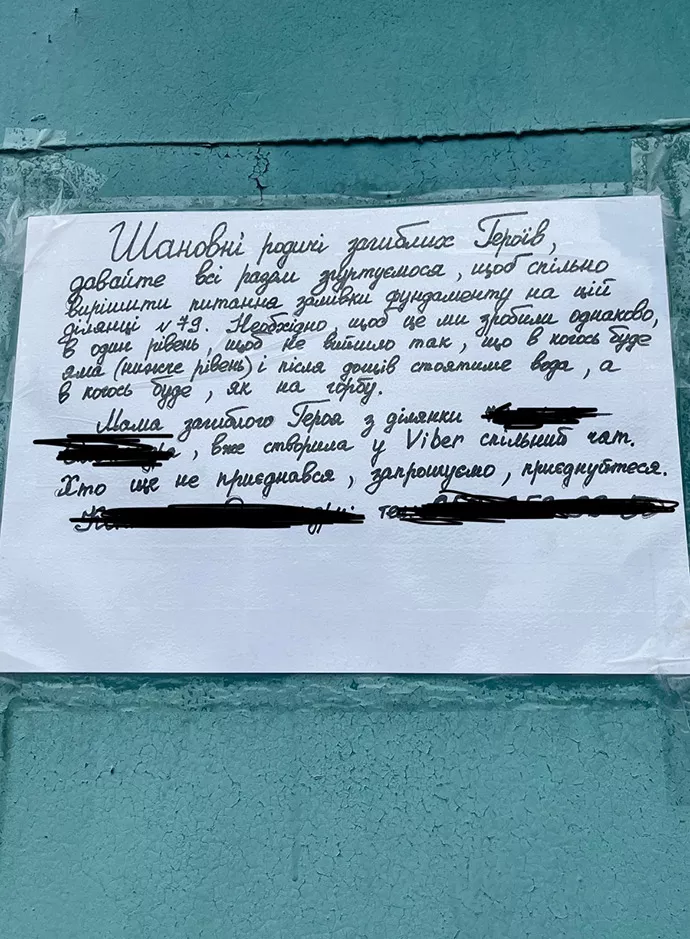 Шановні родичі загиблих Героїв,
давайте всі разом згуртуємося, щоб спільно
вирішити питання заливки фундаменту на цій
ділянці №79. Необхідно, щоб це ми зробили однаково,
в один рівень, щоб не вийшло так, що в когось буде
яма (нижче рівень) і після дощів стоятиме вода, а
в когось буде, як на горбу.
Мама загиблого Героя з ділянки
, вже створила у Viber спільний чат.
Хто ще не приєднався, запрошуємо, приєднуйтеся.
тел